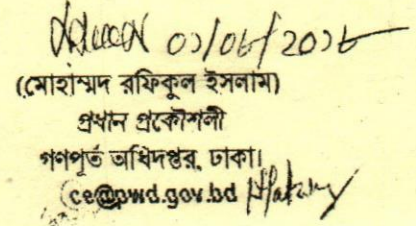 ০১/০৮/২০১৮
(মোহাম্মদ রফিকুল ইসলাম)
প্রধান প্রকৌশলী
গণপূর্ত অধিদপ্তর, ঢাকা।
ce@pwd.gov.bd